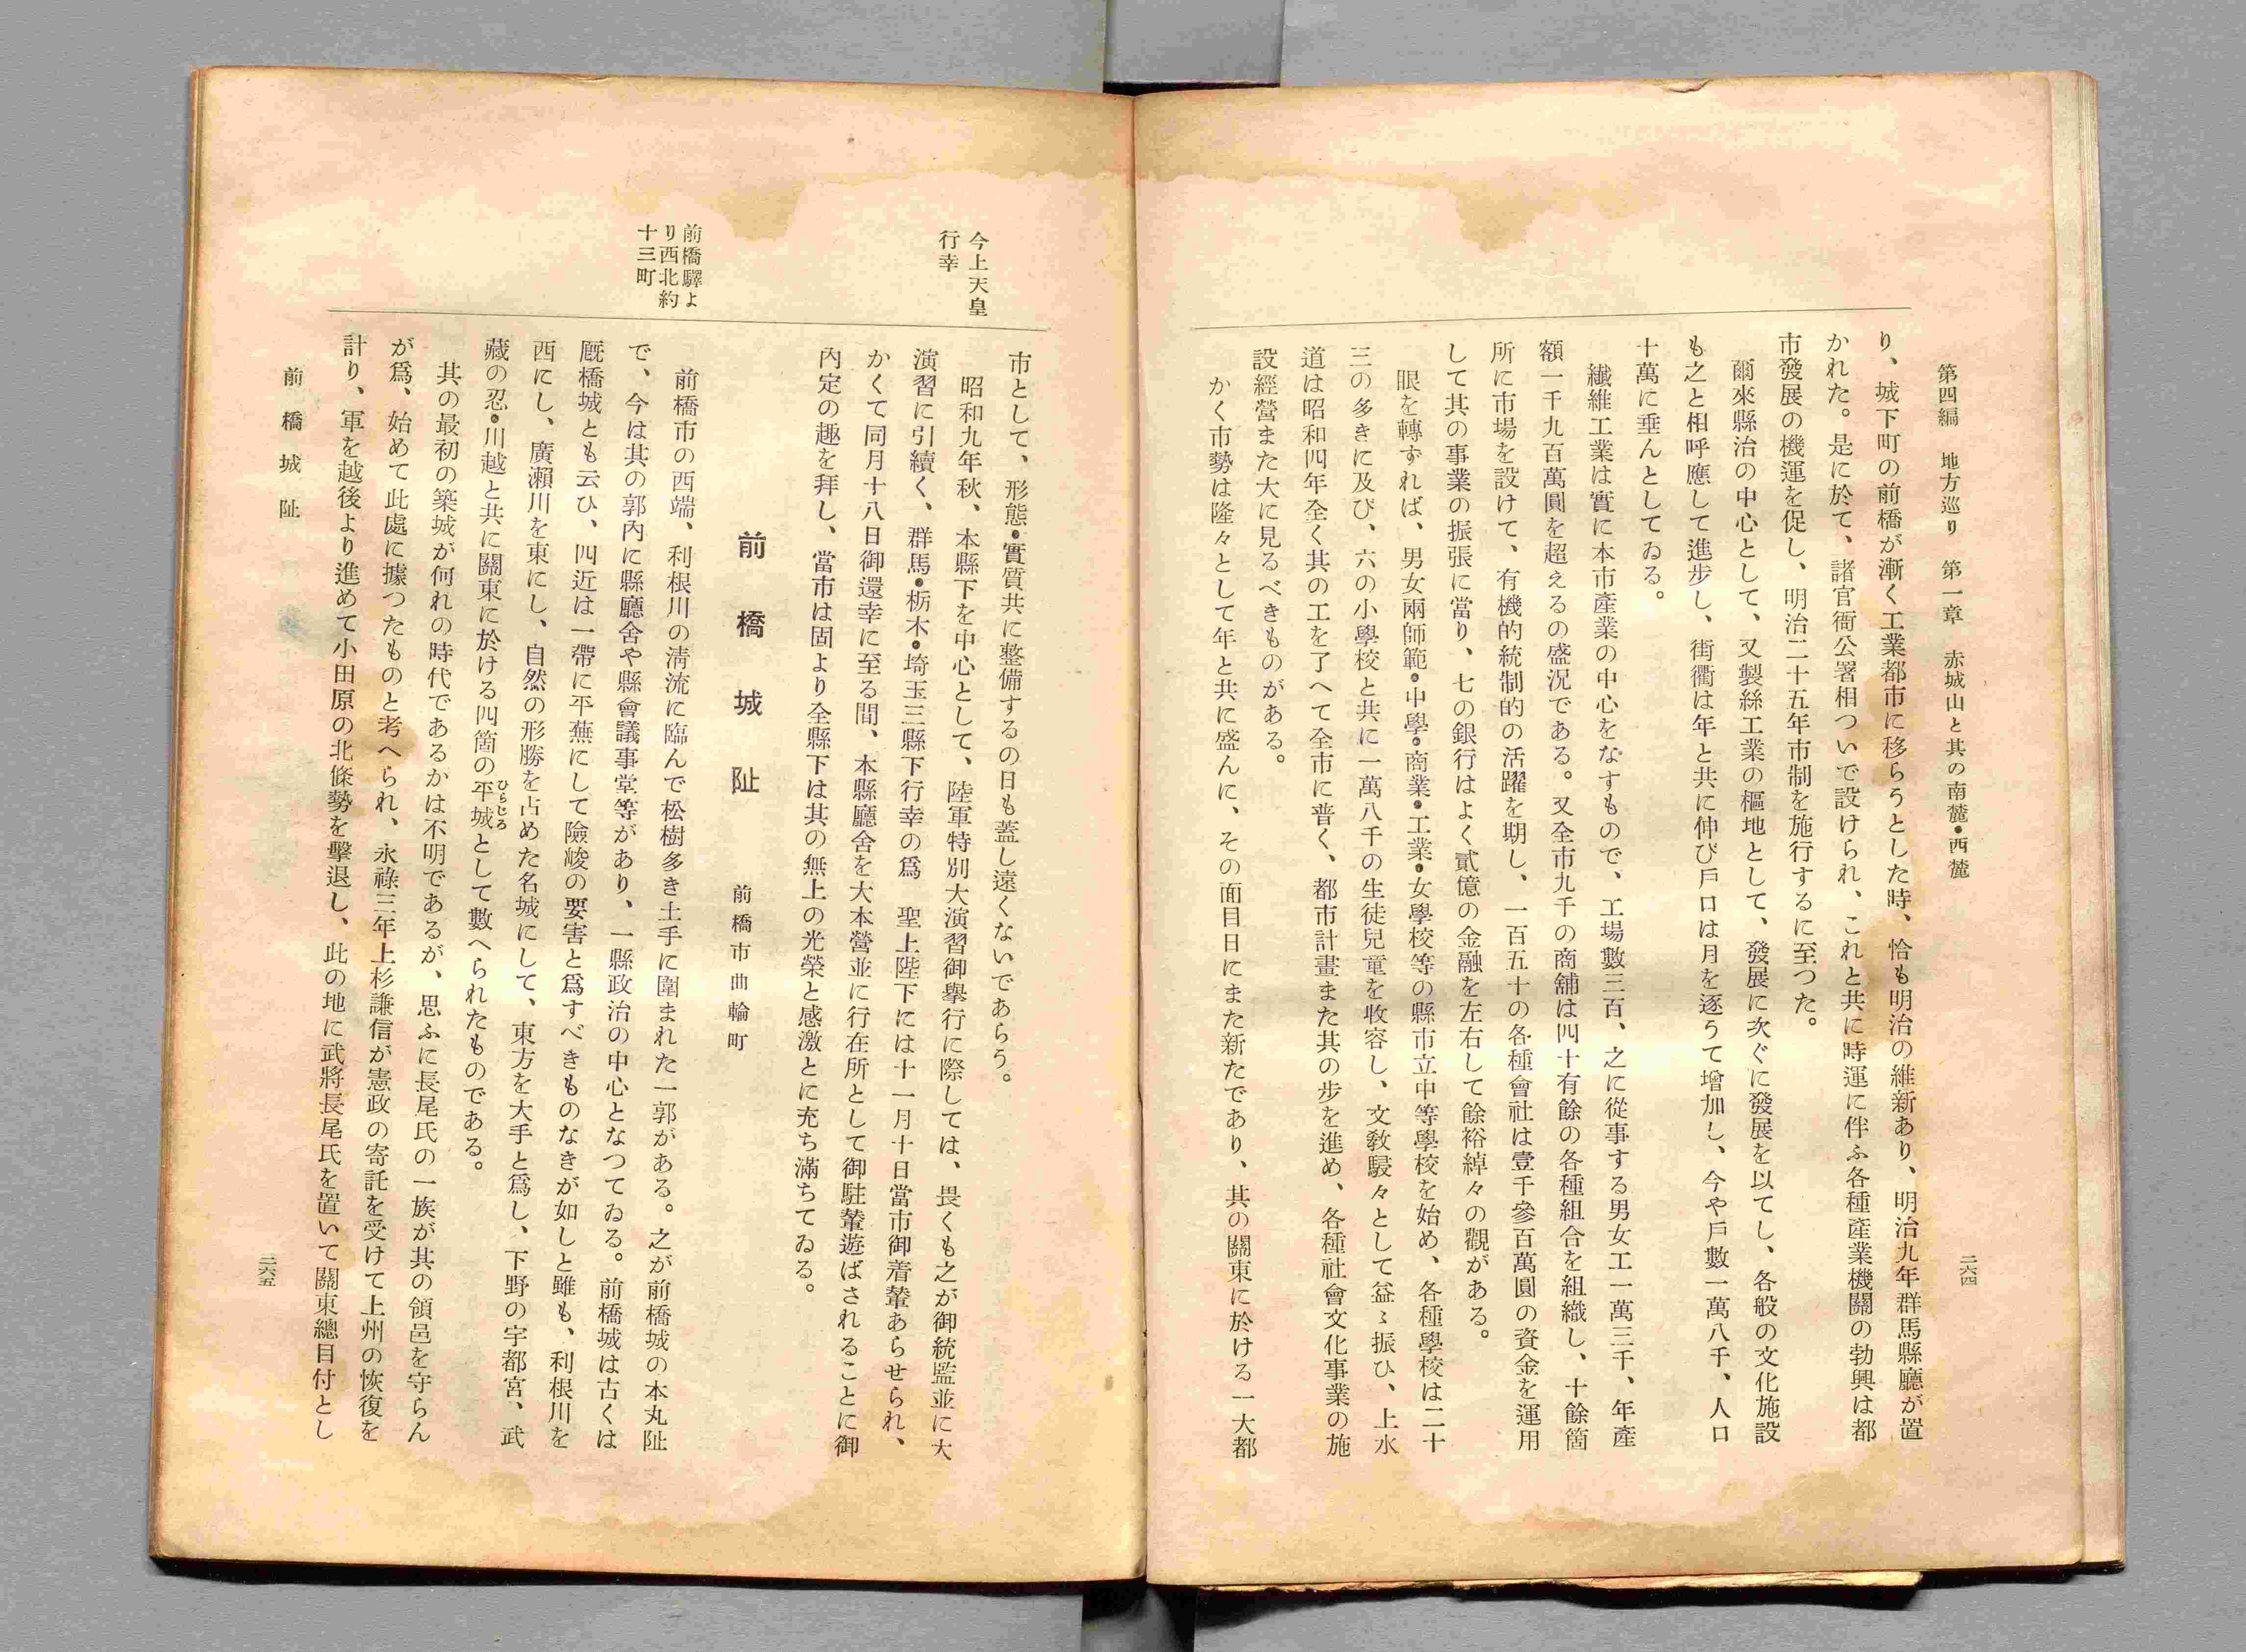 第四編　地方巡り　第一章　赤城山と其の南麓・西麓
二六四
り、城下町の前橋が漸く工業都市に移らうとした時、恰も明治の維新あり、明治九年群馬縣廳が置
かれた。是に於て、諸官衙公署相ついで設けられ、これと共に時運に伴ふ各種產業機關の勃興は都
市發展の機運を促し、明治二十五年市制を施行するに至つた。
爾來縣治の中心として、又製絲工業の樞地として、發展に次ぐに發展を以てし、各般の文化施設
も之と相呼應して進步し、街衢は年と共に伸び戶口は月を逐うて增加し、今や戶數一萬八千、人口
十萬に垂んとしてゐる。
纖維工業は實に本市產業の中心をなすもので、工場數三百、之に從事する男女工一萬三千、年產
額一千九百萬圓を超えるの盛況である。又全市九千の商舖は四十有餘の各種組合を組織し、十餘箇
所に市場を設けて、有機的統制的の活躍を期し、一百五十の各種會社は壹千參百萬圓の資金を運用
して其の事業の振張に當り、七の銀行はよく貳億の金融を左右して餘裕綽々の觀がある。
眼を轉ずれば、男女兩師範・中學・商業・工業・女學校等の縣市立中等學校を始め、各種學校は二十
三の多きに及び、六の小學校と共に一萬八千の生徒兒童を收容し、文敎駸々として益〻振ひ、上水
道は昭和四年全く其の工を了へて全市に普く、都市計畫また其の步を進め、各種社會文化事業の施
設經營また大に見るべきものがある。
かく市勢は隆々として年と共に盛んに、その面目日にまた新たであり、其の關東に於ける一大都
市として、形態・實質共に整備するの日も蓋し遠くないであらう。
今上天皇
行幸
昭和九年秋、本縣下を中心として、陸軍特別大演習御擧行に際しては、畏くも之が御統監並に大
演習に引續く、群馬・栃木・埼玉三縣下行幸の爲　聖上陛下には十一月十日當市御着輦あらせられ、
かくて同月十八日御還幸に至る間、本縣廳舍を大本營並に行在所として御駐輦遊ばされることに御
內定の趣を拜し、當市は固より全縣下は其の無上の光榮と感激とに充ち滿ちてゐる。
前橋城阯　前橋市曲輪町
前橋驛よ
り西北約
十三町
前橋市の西端、利根川の淸流に臨んで松樹多き土手に圍まれた一郭がある。之が前橋城の本丸阯
で、今は其の郭內に縣廳舍や縣會議事堂等があり、一縣政治の中心となつてゐる。前橋城は古くは
厩橋城とも云ひ、四近は一帶に平蕪にして險峻の要害と爲すべきものなきが如しと雖も、利根川を
西にし、廣瀨川を東にし、自然の形勝を占めた名城にして、東方を大手と爲し、下野の宇都宮、武
藏の忍・川越と共に關東に於ける四箇の平城として數へられたものである。
ひらじろ
其の最初の築城が何れの時代であるかは不明であるが、思ふに長尾氏の一族が其の領邑を守らん
が爲、始めて此處に據つたものと考へられ、永祿三年上杉謙信が憲政の寄託を受けて上州の恢復を
計り、軍を越後より進めて小田原の北條勢を擊退し、此の地に武將長尾氏を置いて關東總目付とし
前橋城阯
二六五